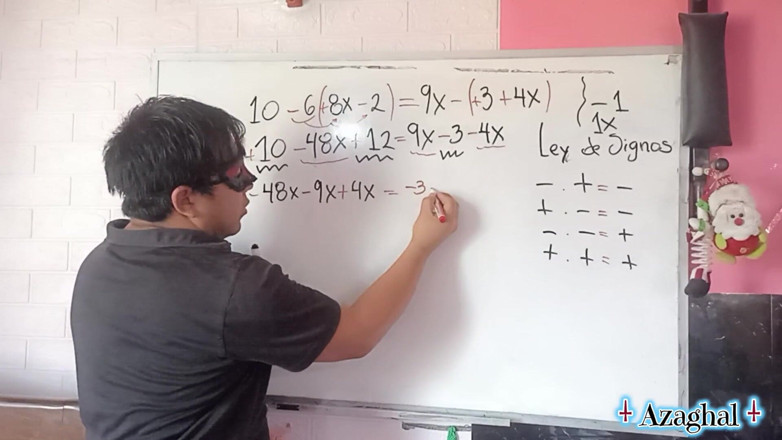 10 -6(+8x-2) = 9x-(+3+4x) } -1
1x
+10 -48x+12=9x-3-4x
-48x-9x+4x = -3
Ley de Signos
- . + = -
+ . - = -
- . - = +
+ . + = +
Azaghal